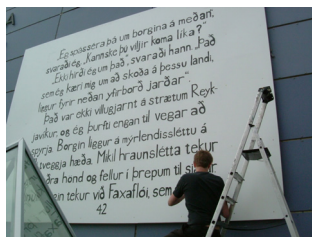 „Eg spássera þá um borgina á meðan,
svaraði ég. „Kannske þú viljir koma líka?"
„Ekki hirði ég um það", svaraði hann. „Það
sem ég kæri mig um að skoða á þessu landi,
liggur fyrir neðan yfirborð jarðar."
Það var ekki villugjarnt á strætum Reyk-
javíkur, og ég þurfti engan til vegar að
spyrja. Borgin liggur á mýrlendissléttu á
tveggja hæða. Mikil hraunslétta tekur
aðra hönd og fellur í þrepum til
tekur við Faxaflói, sem
42